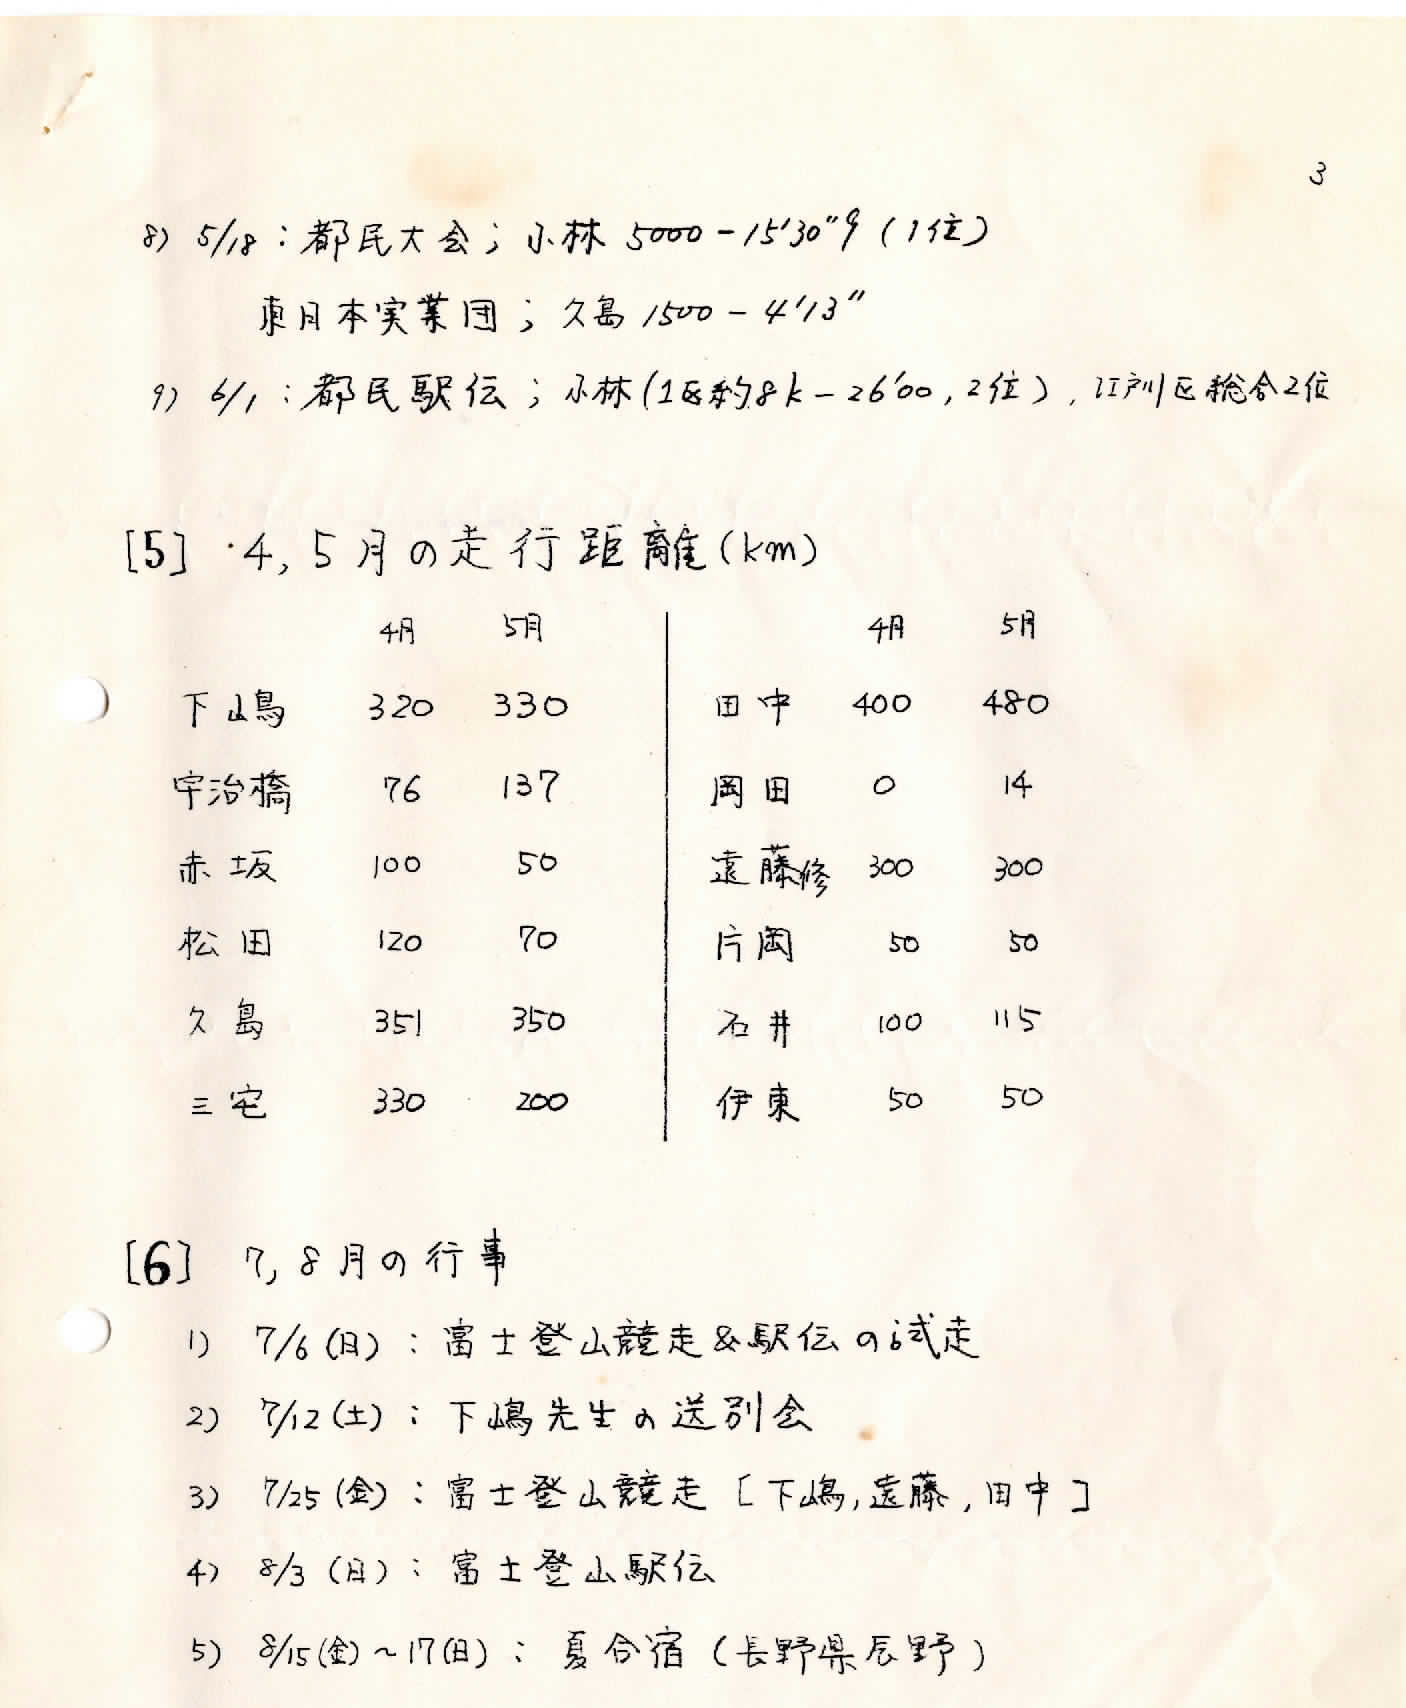 3
8) 5/18 : 都民大会 ; 小林 5000 - 15'30"9 (1位)
東日本実業団 ; 久島 1500 - 4'13"
9) 6/1 : 都民駅伝 ; 小林 (1区約8k - 26'00, 2位) , 江戸川区総合2位
[5] ・4, 5月の走行距離(km)
4月 5月 4月 5月
下嶋 320 330 田中 400 480
宇治橋 76 137 岡田 0 14
赤坂 100 50 遠藤修 300 300
松田 120 70 片岡 50 50
久島 351 350 石井 100 115
三宅 330 200 伊東 50 50
[6] 7, 8月の行事
1) 7/6 (日) : 富士登山競走&駅伝の試走
2) 7/12 (土) : 下嶋先生の送別会
3) 7/25 (金) : 富士登山競走 [下嶋, 遠藤, 田中]
4) 8/3 (日) : 富士登山駅伝
5) 8/15 (金) ~ 17 (日) : 夏合宿 (長野県辰野)